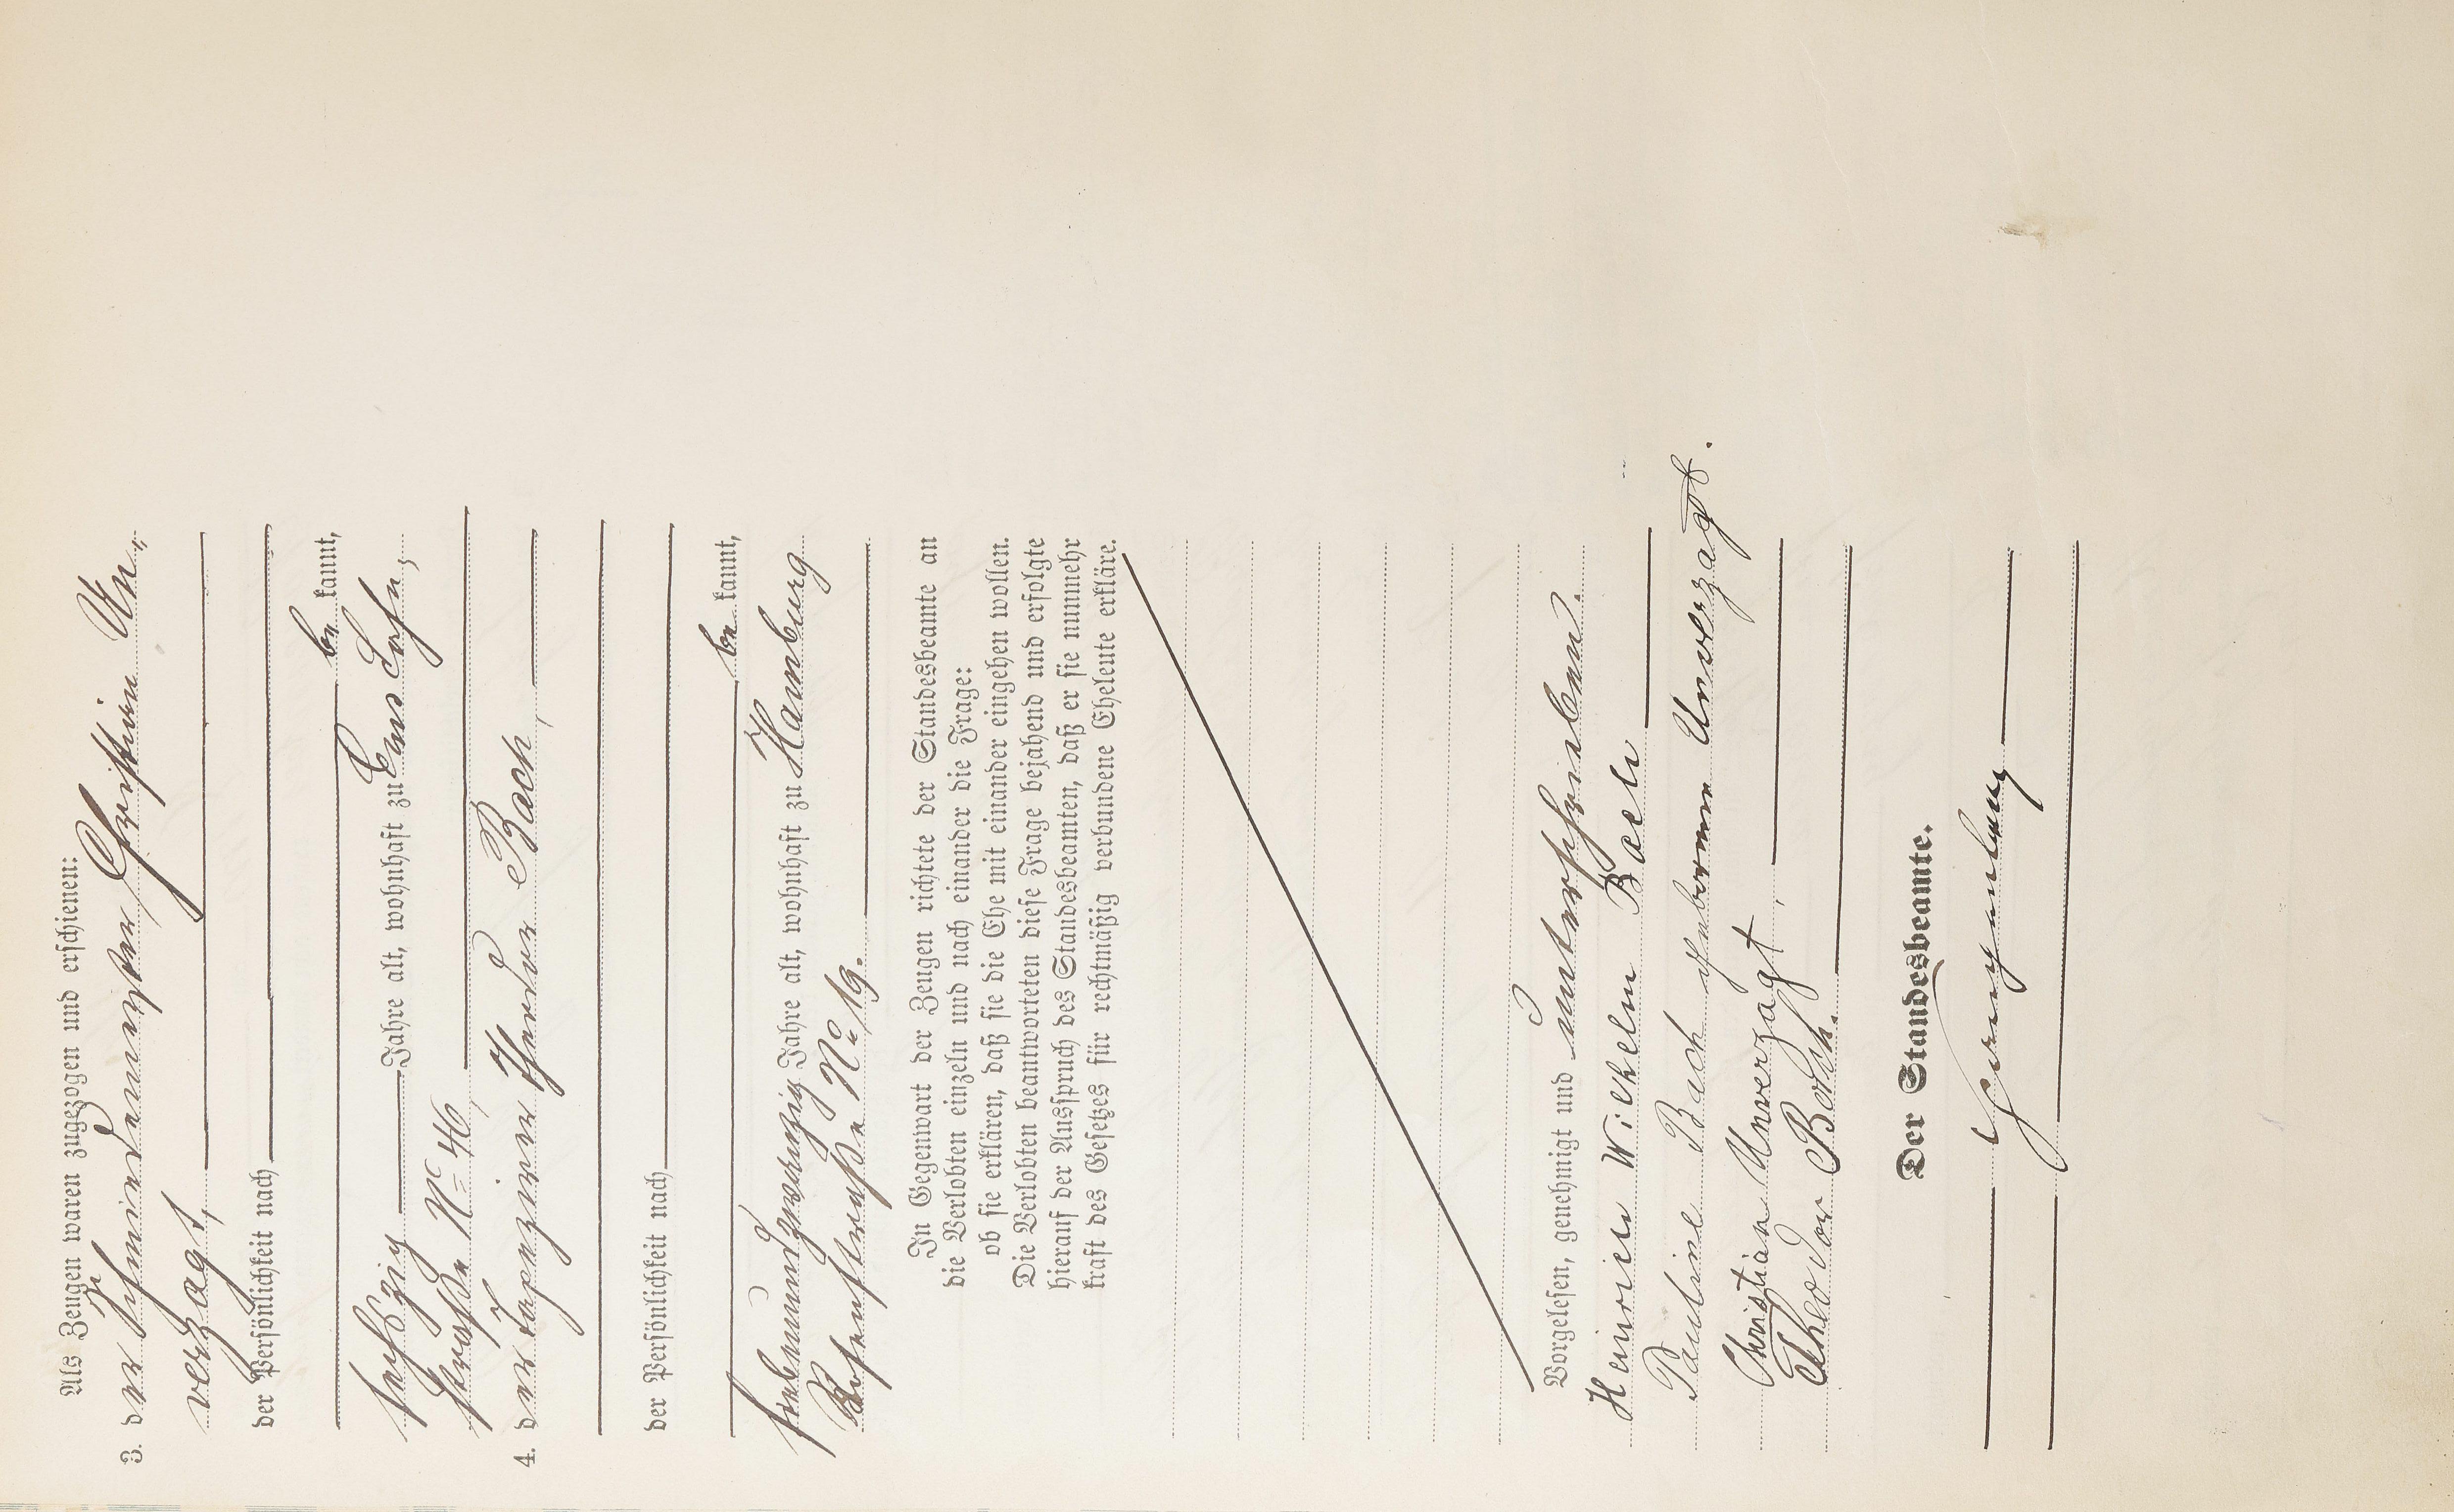 Als Zeugen waren zugezogen und erschienen:
3. der Schmiedemeister Christian Un-
verzagt,
der Persönlichkeit nach
be kannt,
sechszig Jahre alt, wohnhaft zu Ems, Lahn,
straße No 46,
4. der Tapezirer Theodor Bach,
der Persönlichkeit nach
be kannt,
siebenundzwanzig Jahre alt, wohnhaft zu Hamburg
straße No 19.
In Gegenwart der Zeugen richtete der Standesbeamte an
die Verlobten einzeln und nach einander die Frage:
ob sie erklären, daß sie die Ehe mit einander eingehen wollen.
Die Verlobten beantworteten diese Frage bejahend und erfolgte
hierauf der Ausspruch des Standesbeamten, daß er sie nunmehr
kraft des Gesetzes für rechtmäßig verbundene Eheleute erkläre.
Vorgelesen, genehmigt und unterschrieben.
Heinrich Wilhelm Bach
Pauline Bach geborene Unverzagt.
Christian Unverzagt.
Theodor Bach.
Der Standesbeamte.